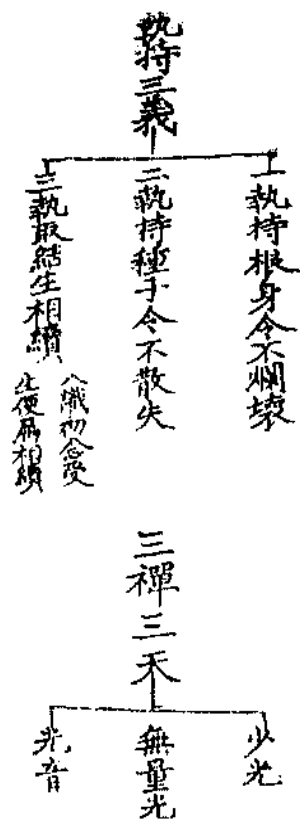 執持三義
一執持根身令不爛壞
二執持種子令不散失
三執取結生相續
八識初念受
生便屬相續
三禪三天
少光
無量光
光音